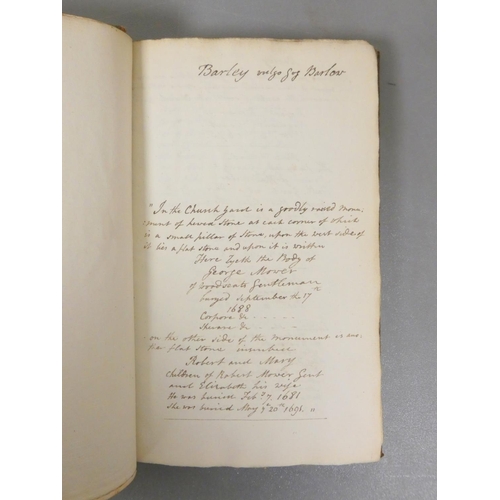 Barley vulgo Barlow
"In the Church Yard is a goodly raised monu:
ment of hewed Stone at each corner of which
is a small pillar of Stone, upon the west side of
it lies a flat stone and upon it is written
Here lyeth the Body of
George Mower
of Woodseats Gentleman
buryed September the 17th
1688
Corpora &c - - - - -
&c - - - - -
on the other side of the monument is ano:
ther flat stone
Robert and Mary
Children of Robert Mower Gent
and Elizabeth his wife
He was buried Feb: 7. 1681
She was buried May ye 20th 1691. "